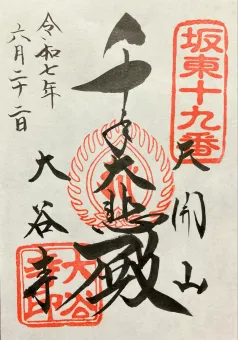 坂東十九番
天開山
千手大悲殿
大谷寺
令和七年
六月二十二日
大谷寺印